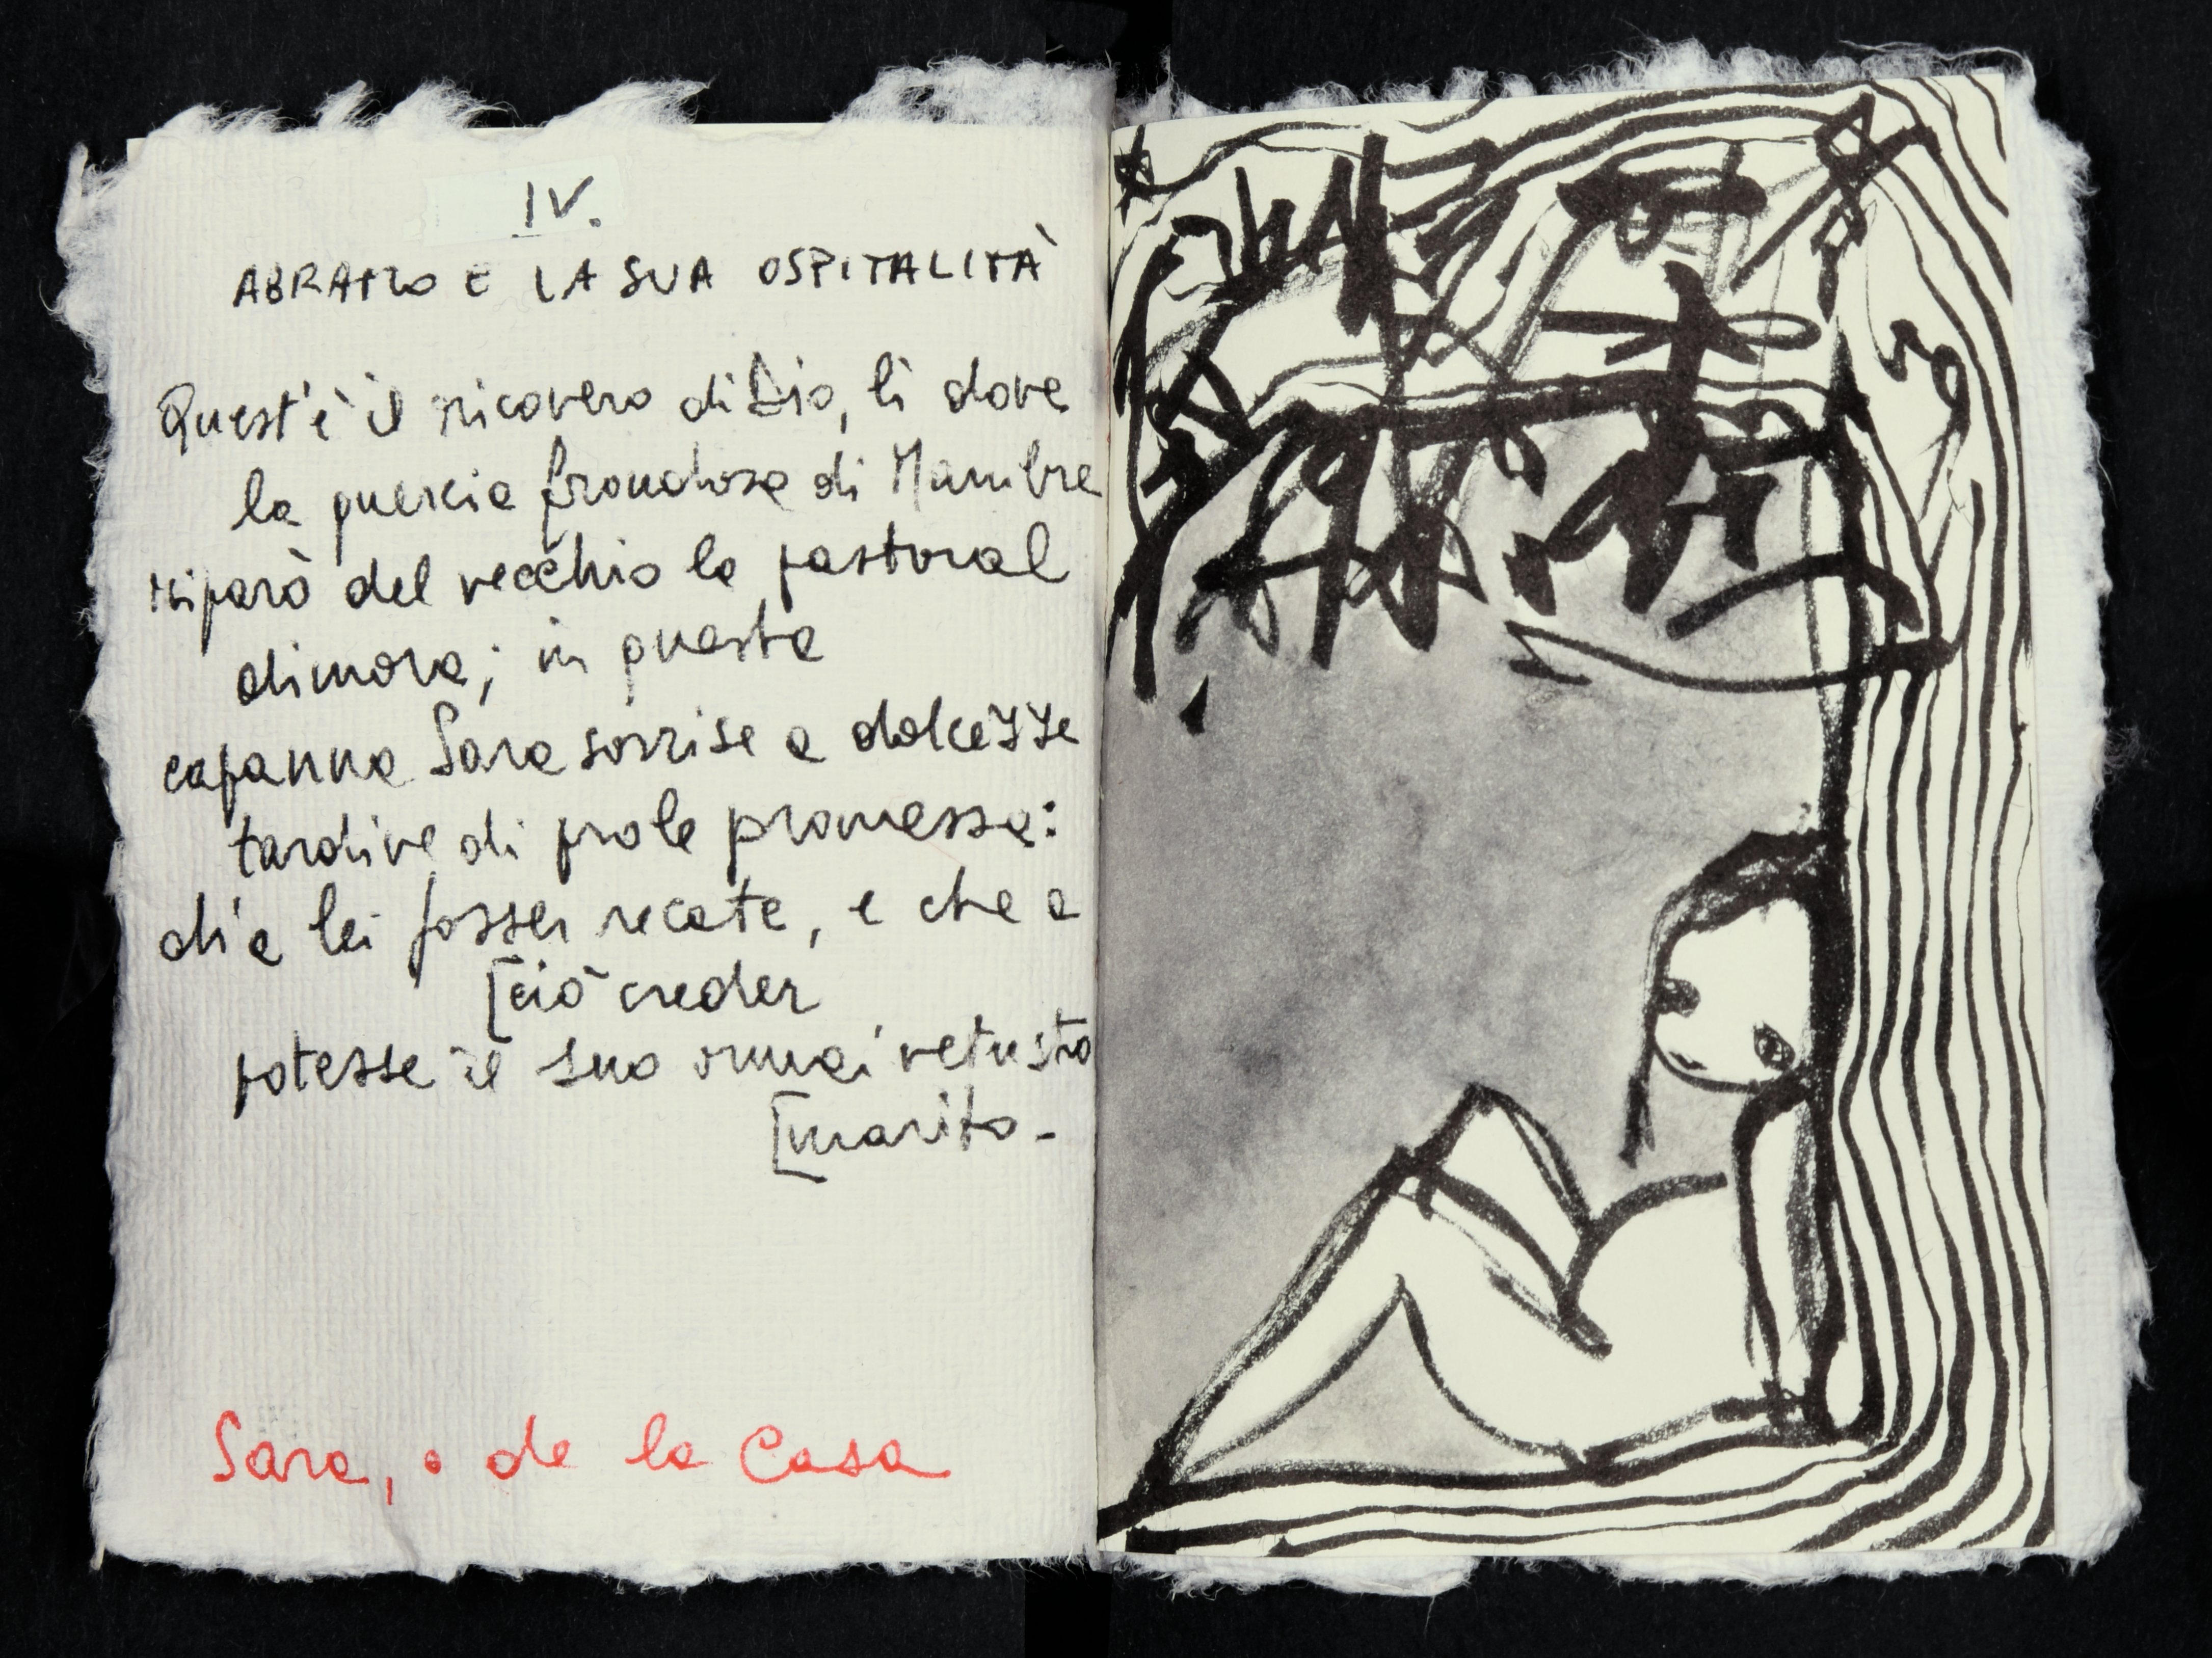 IV.
ABRAMO E LA SUA OSPITALITÀ
Quest'è il ricovero di Dio, lì dove
la quercia frondosa di Mambre
riparò del vecchio la pastoral
dimora; in questa
capanna Sara sorrise a dolcezze
tardive di prole promessa:
di a lei fosser recate, e che a
[ciò creder
potesse il suo ormai vetusto
[marito.
Sara, o de la Casa